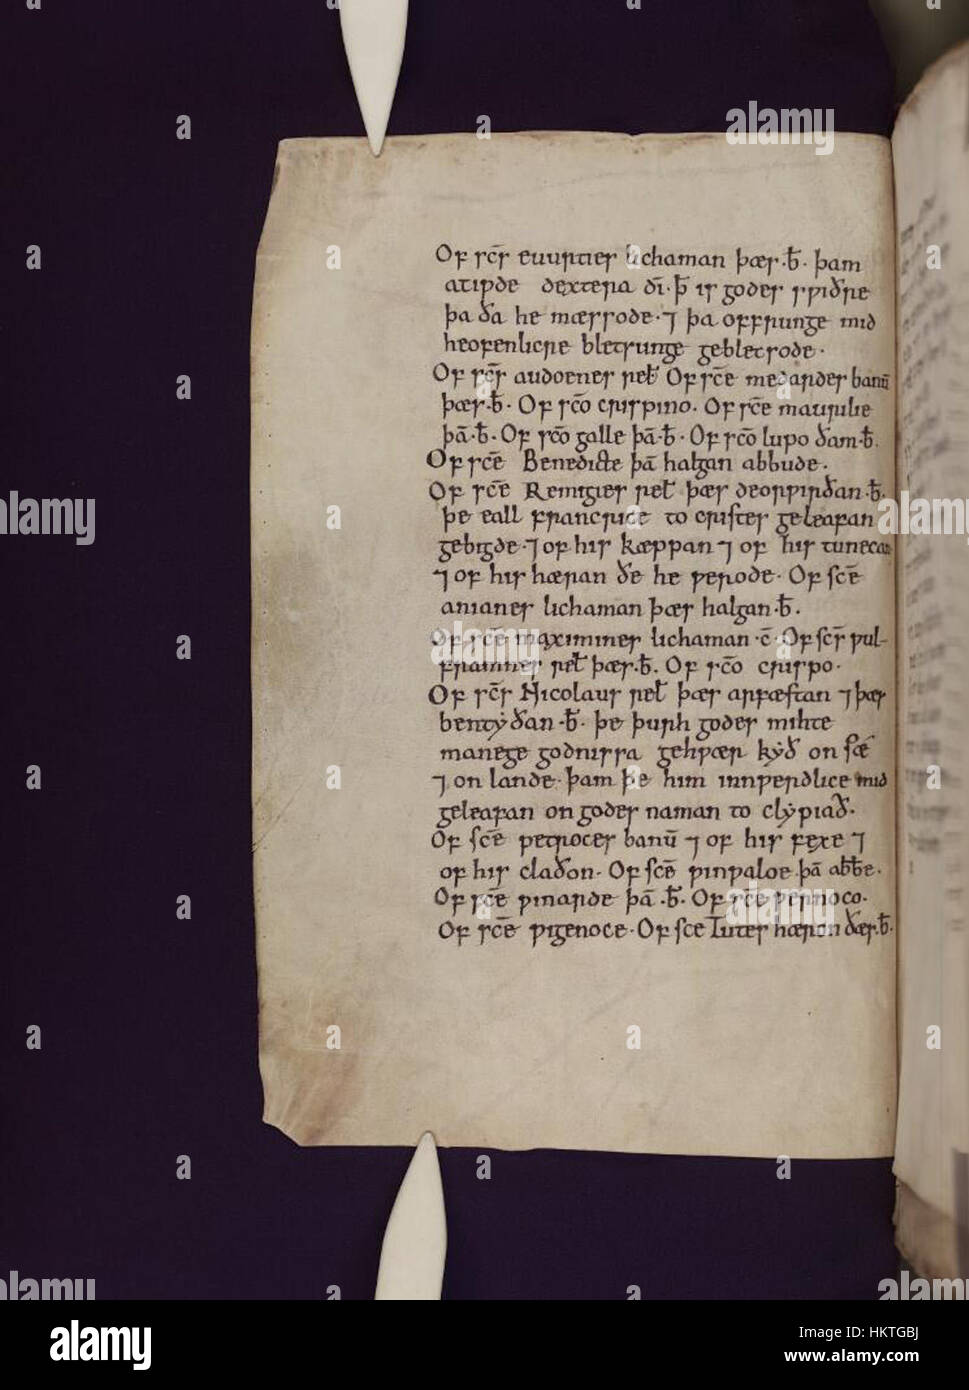 Of sc̄s euurties lichaman þæs .b̄. þam
ætiƿde dextera dī. þ̄ is godes sƿiðre
þa ða he mæssode. ⁊ þa offrunge mid
heofenlicre bletsunge gebletsode.
Of sc̄s audoenes rel̄ Of sc̄e medardes banū
þæs .b̄. Of sc̄o crispino. Of sc̄e maurilie
þā .b̄. Of sc̄o galle þā .b̄. Of sc̄o lupo ðam .b̄.
Of sc̄e Benedicte þā halgan abbude.
Of sc̄e Remigies rel̄ þæs deorƿirðan .b̄.
þe eall francrice to cristes geleafan
gebigde. ⁊ of his kæppan ⁊ of his tunecan
⁊ of his hæran ðe he ƿerode. Of sc̄e
anianes lichaman þæs halgan .b̄.
Of sc̄e maximines lichaman .c̄. Of sc̄s ƿul-
framnes rel̄ þæs .b̄. Of sc̄o crispo.
Of sc̄s Nicolaus rel̄ þæs arfæstan ⁊ þæs
bentyðan .b̄. þe þurh godes mihte
manege godnissa gehƿær kyð on sǽ
⁊ on lande. þam þe him innƿerdlice mid
geleafan on godes naman to clypiað.
Of sc̄e petroces banū ⁊ of his fexe ⁊
of his claðon. Of sc̄e ƿinƿaloe þā ab̄b̄e.
Of sc̄e ƿinarde þā .b̄. Of sc̄e ƿennoco.
Of sc̄e ƿigenoce. Of sce Tutes hæron ðæs .b̄.
alamy
Image ID: HKTGBJ
www.alamy.com